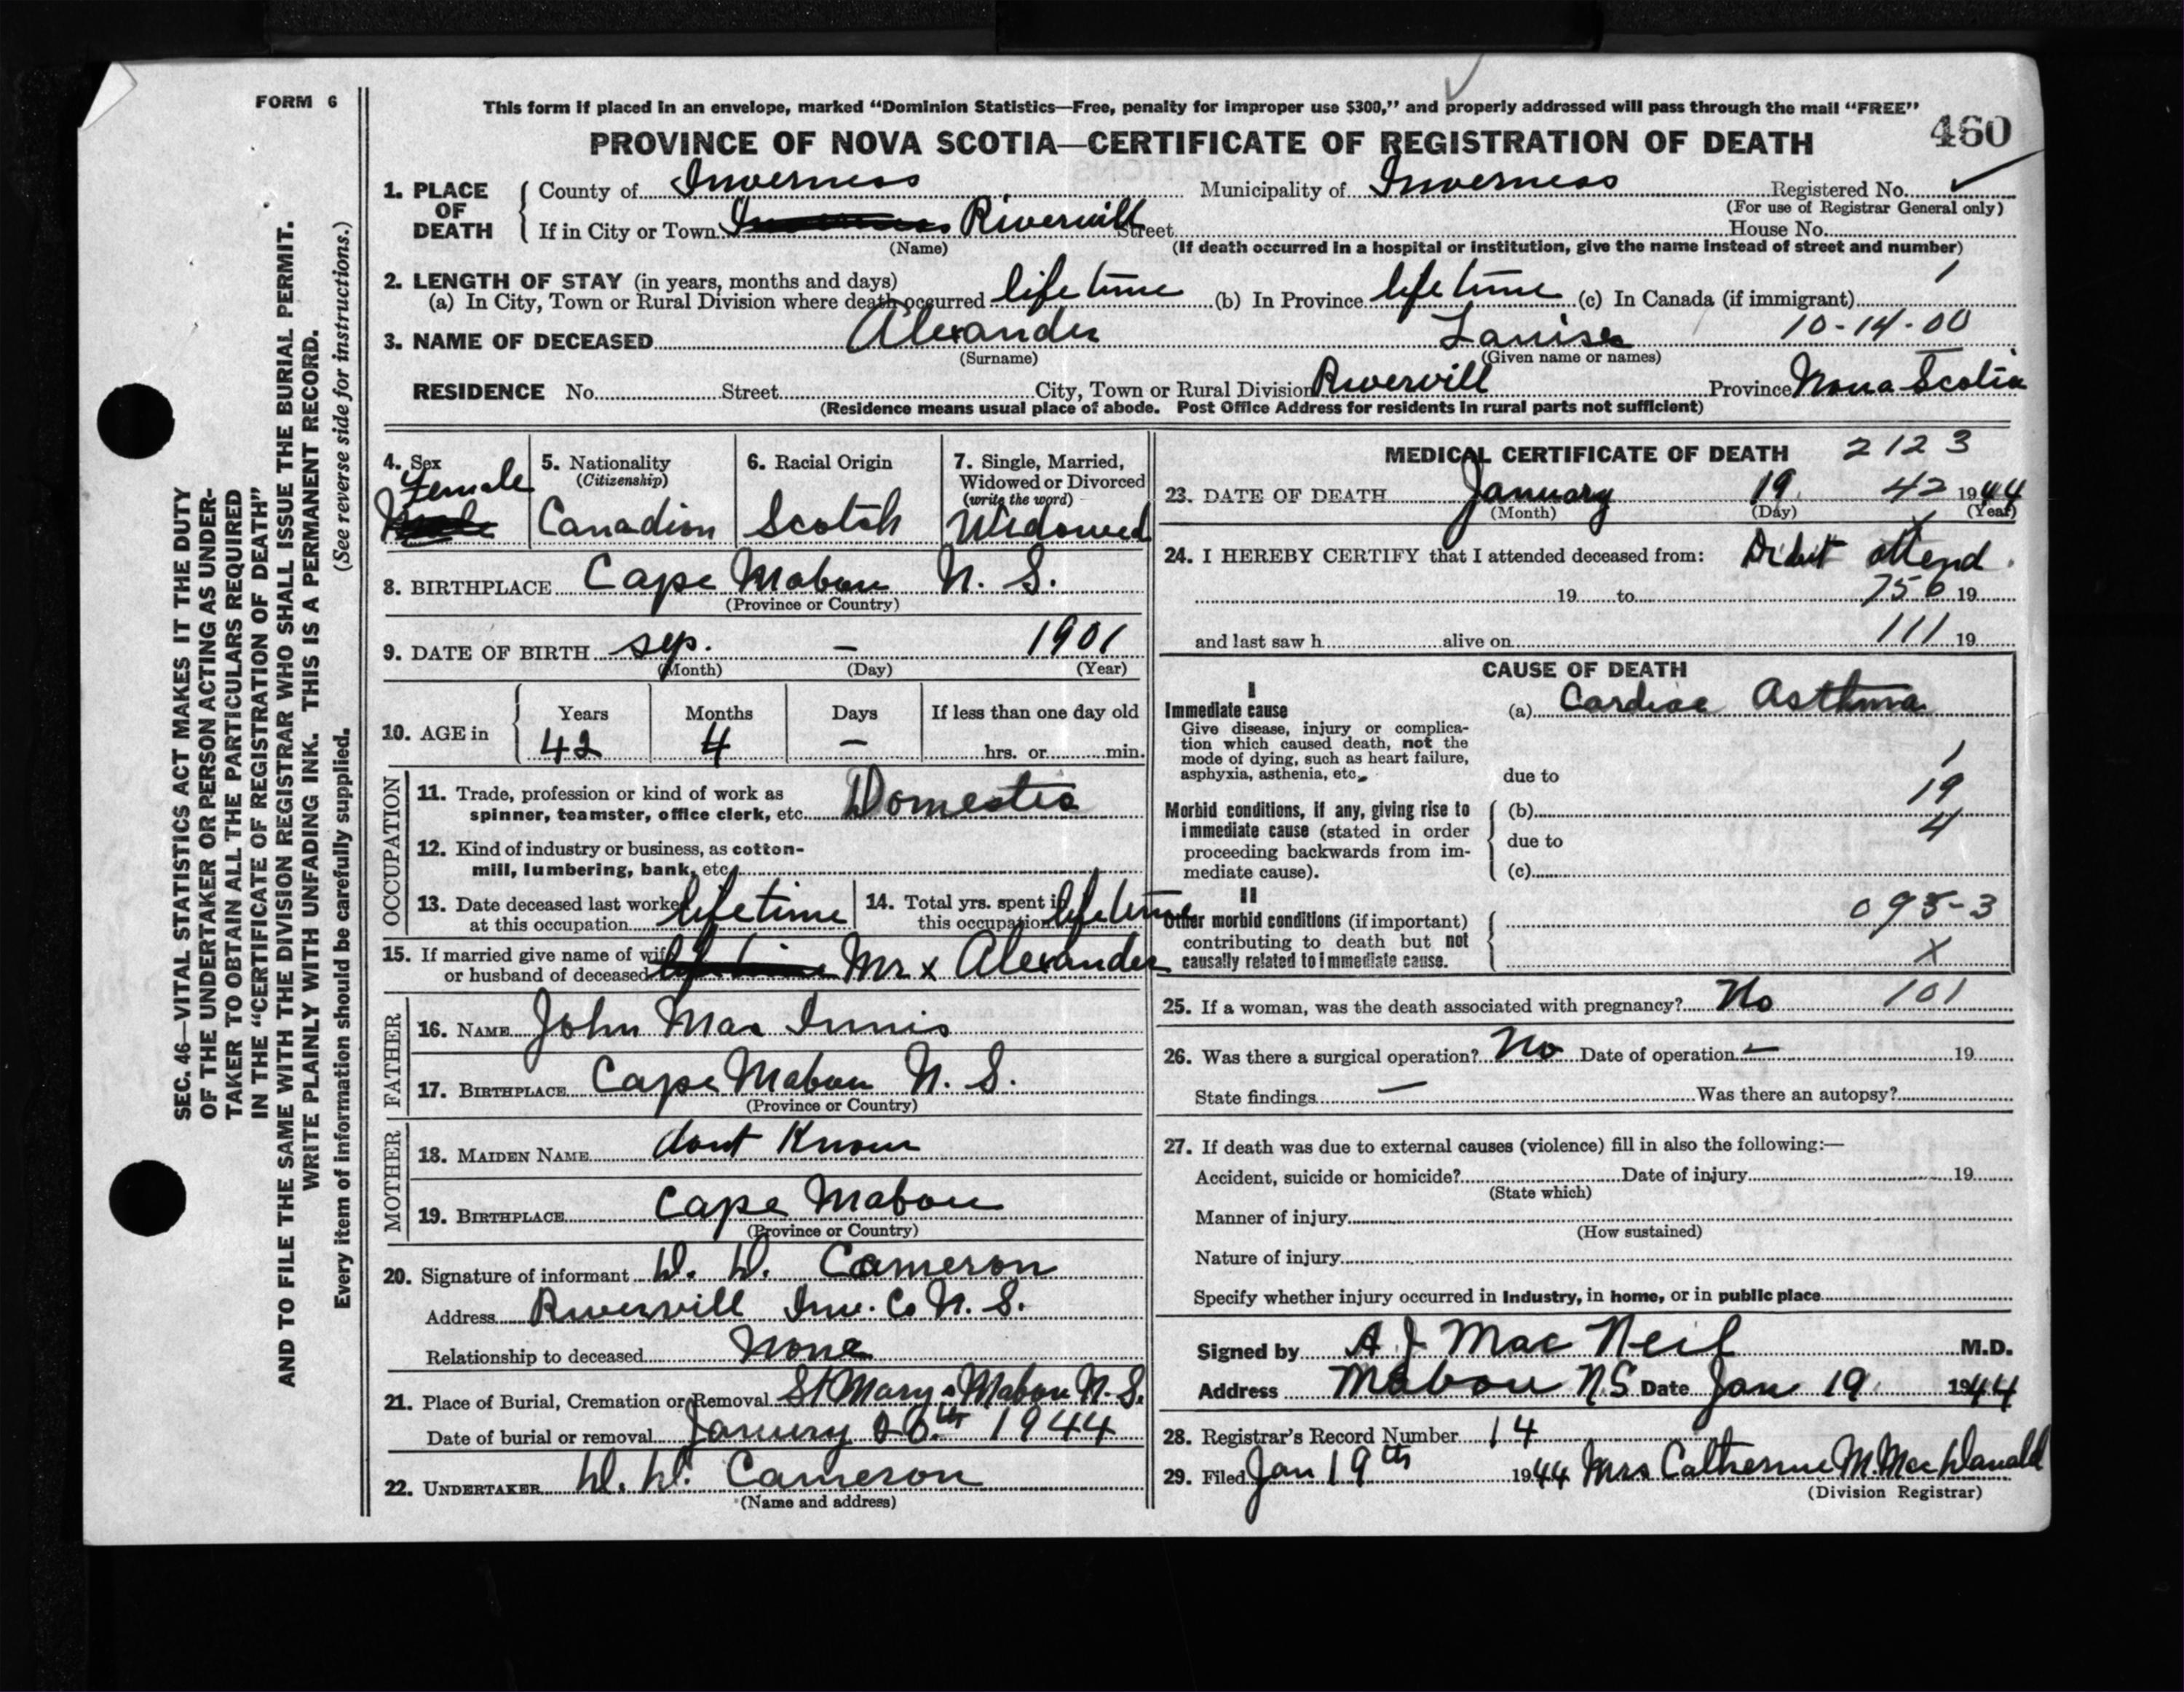 FORM 6
This form if placed in an envelope, marked “Dominion Statistics—Free, penalty for improper use $300,” and properly addressed will pass through the mail “FREE”
PROVINCE OF NOVA SCOTIA—CERTIFICATE OF REGISTRATION OF DEATH 460
1. PLACE OF DEATH { County of Inverness Municipality of Inverness Registered No.
(For use of Registrar General only)
If in City or Town Rivervill Street House No.
(Name) (If death occurred in a hospital or institution, give the name instead of street and number)
2. LENGTH OF STAY (in years, months and days) 1
(a) In City, Town or Rural Division where death occurred life time (b) In Province life time (c) In Canada (if immigrant)
3. NAME OF DECEASED Alexander Louise 10-14-00
(Surname) (Given name or names)
RESIDENCE No. Street City, Town or Rural Division Rivervill Province Nova Scotia
(Residence means usual place of abode. Post Office Address for residents in rural parts not sufficient)
4. Sex Female
5. Nationality (Citizenship) Canadian
6. Racial Origin Scotch
7. Single, Married, Widowed or Divorced (write the word) Widowed
8. BIRTHPLACE Cape Mabou N. S.
(Province or Country)
9. DATE OF BIRTH Sep. — 1901
(Month) (Day) (Year)
10. AGE in { Years 42 Months 4 Days — If less than one day old hrs. or min.
OCCUPATION
11. Trade, profession or kind of work as
spinner, teamster, office clerk, etc. Domestic
12. Kind of industry or business, as cotton-
mill, lumbering, bank, etc.
13. Date deceased last worked
at this occupation lifetime
14. Total yrs. spent in
this occupation lifetime
15. If married give name of wife
or husband of deceased Mr x Alexander
FATHER
16. NAME John Mac Innis
17. BIRTHPLACE Cape Mabou N. S.
(Province or Country)
MOTHER
18. MAIDEN NAME dont Know
19. BIRTHPLACE Cape Mabou
(Province or Country)
20. Signature of informant D. D. Cameron
Address Rivervill Inv. Co N. S.
Relationship to deceased None
21. Place of Burial, Cremation or Removal St Marys Mabou N. S.
Date of burial or removal January th 1944
22. UNDERTAKER D. D. Cameron
(Name and address)
MEDICAL CERTIFICATE OF DEATH 2123
23. DATE OF DEATH January 19 42 1944
(Month) (Day) (Year)
24. I HEREBY CERTIFY that I attended deceased from: attend.
19 to 756 19
and last saw h alive on 111 19
CAUSE OF DEATH
I
Immediate cause
Give disease, injury or complica-
tion which caused death, not the
mode of dying, such as heart failure,
asphyxia, asthenia, etc.
(a) Cardiac Asthma
1
due to
19
Morbid conditions, if any, giving rise to
immediate cause (stated in order
proceeding backwards from im-
mediate cause).
(b)
4
due to
(c)
II
Other morbid conditions (if important)
contributing to death but not
causally related to immediate cause.
095-3
x
25. If a woman, was the death associated with pregnancy? No 101
26. Was there a surgical operation? No Date of operation — 19
State findings — Was there an autopsy?
27. If death was due to external causes (violence) fill in also the following:—
Accident, suicide or homicide? Date of injury 19
(State which)
Manner of injury
(How sustained)
Nature of injury
Specify whether injury occurred in industry, in home, or in public place
Signed by A J Mac Neil M.D.
Address Mabou N.S Date Jan 19 1944
28. Registrar's Record Number 14
29. Filed Jan 19th 1944 Mrs Catherine M. MacDonald
(Division Registrar)
SEC. 46—VITAL STATISTICS ACT MAKES IT THE DUTY
OF THE UNDERTAKER OR PERSON ACTING AS UNDER-
TAKER TO OBTAIN ALL THE PARTICULARS REQUIRED
IN THE “CERTIFICATE OF REGISTRATION OF DEATH”
AND TO FILE THE SAME WITH THE DIVISION REGISTRAR WHO SHALL ISSUE THE BURIAL PERMIT.
WRITE PLAINLY WITH UNFADING INK. THIS IS A PERMANENT RECORD.
Every item of information should be carefully supplied. (See reverse side for instructions.)